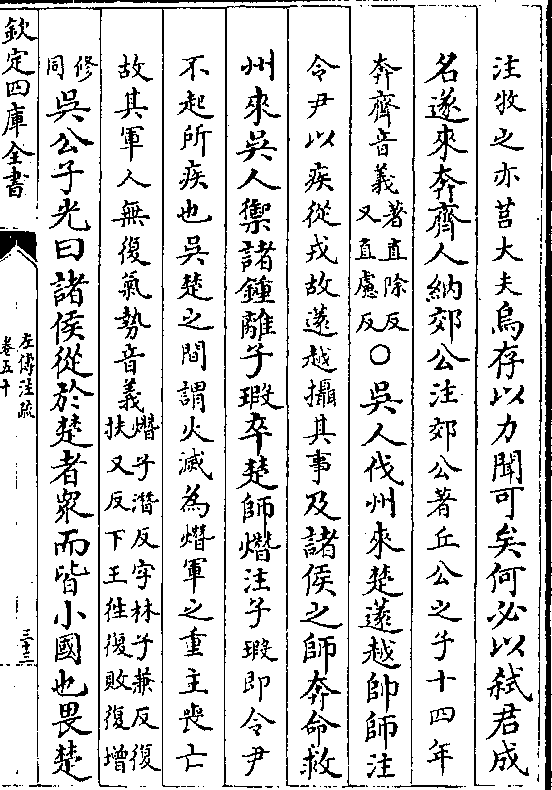 注牧之亦莒大夫烏存以力聞可矣何必以弑君成
名遂來奔齊人納郊公注郊公著丘公之子十四年
奔齊音義著直除反又直慮反○吳人伐州來楚薳越帥師注
令尹以疾從戎故薳越攝其事及諸侯之師奔命救
州來吳人禦諸鍾離子瑕卒楚師熸注子瑕即令尹
不起所疾也吳楚之間謂火滅為熸軍之重主喪亡
故其軍人無復氣勢音義熸子潛反字林子兼反復扶又反下王徃復敗復增
修同吳公子光曰諸侯從於楚者衆而皆小國也畏楚
欽定四庫全書
左傳注疏
卷五十
三十二